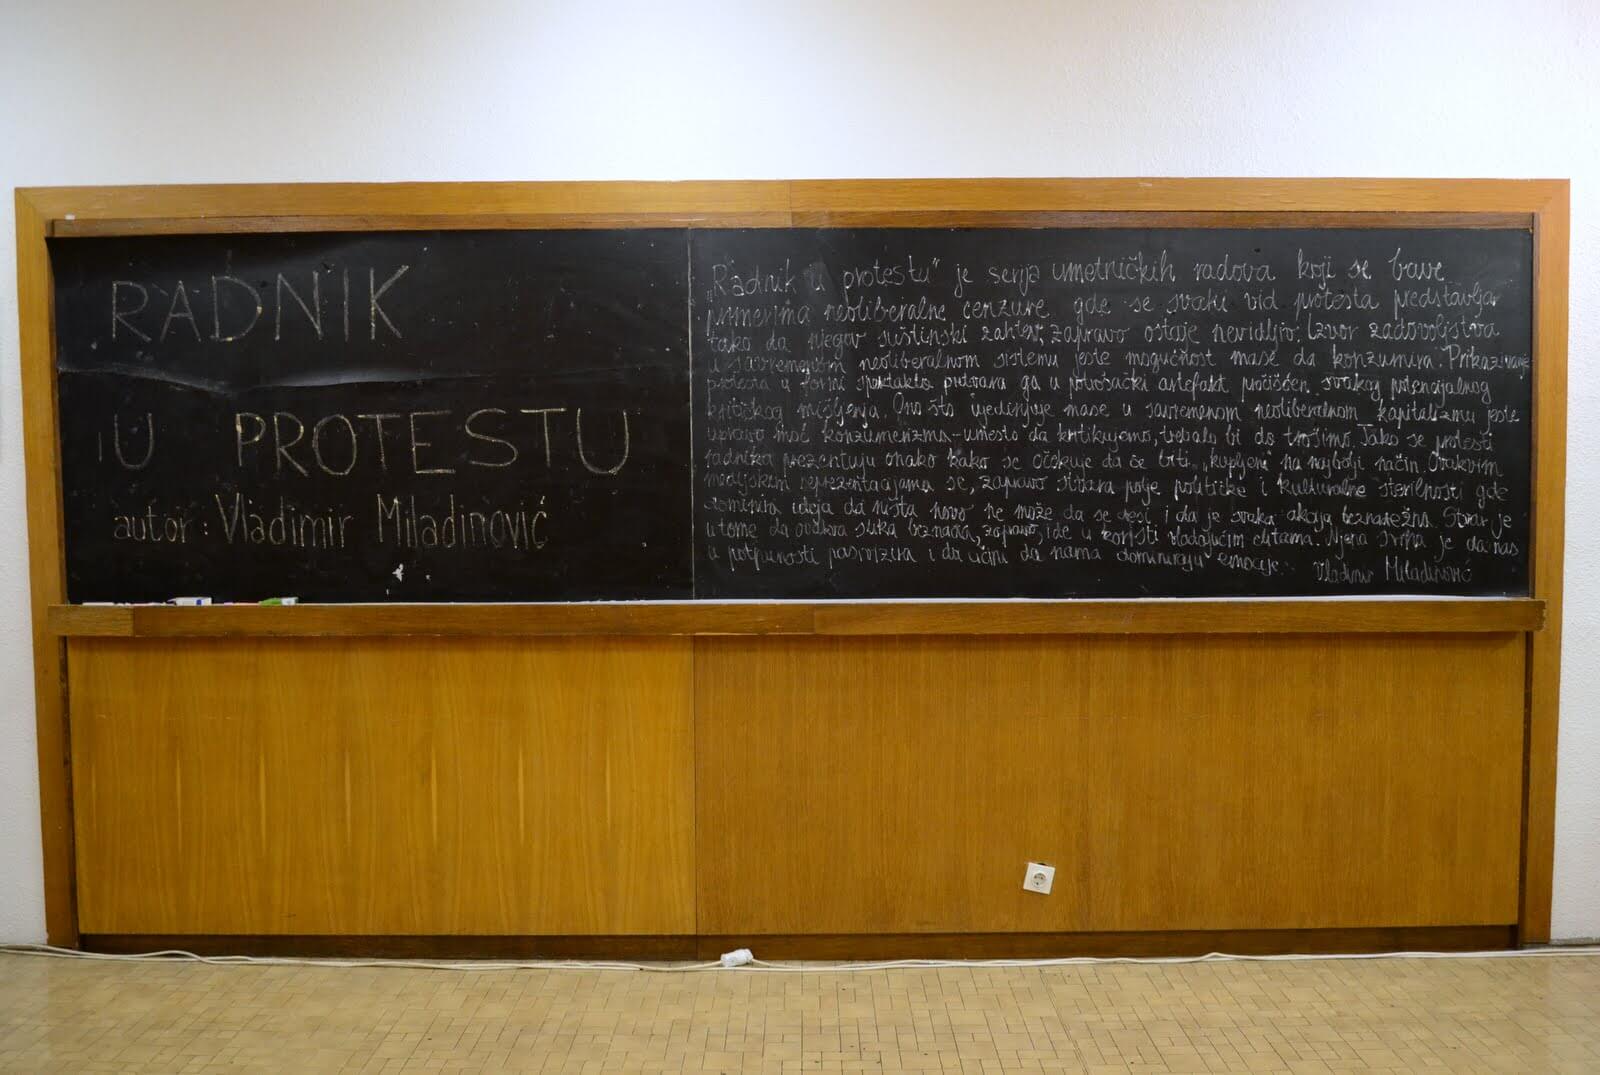 RADNIK
U PROTESTU
autor: Vladimir Miladinović
„Radnik u protestu" je serija umetničkih radova koji se bave
primerima neoliberalne cenzure gde se svaki vid protesta predstavlja
tako da njegov suštinski zahtev, zapravo ostaje nevidljiv. Izvor zadovoljstva
u savremenom neoliberalnom sistemu jeste mogućnost mase da konzumira. Prikazivanje
protesta u formi spektakla pretvara ga u potrošački artefakt pročišćen svakog potencijalnog
kritičkog mišljenja. Ono što ujedinjuje mase u savremenom neoliberalnom kapitalizmu jeste
upravo moć konzumerizma - umesto da kritikujemo, trebalo bi da trošimo. Tako se protesti
radnika prezentuju onako kako se očekuje da će biti „kupljeni" na najbolji način. Ovakvim
medijskim reprezentacijama se, zapravo stvara polje političke i kulturalne sterilnosti gde
dominira ideja da ništa novo ne može da se desi i da je svaka akcija beznadežna. Stvar je
u tome da ovakva slika beznađa, zapravo, ide u korist vladajućim elitama. Njena svrha je da nas
u potpunosti pasivizira i da učini da nama dominiraju emocije.
Vladimir Miladinović